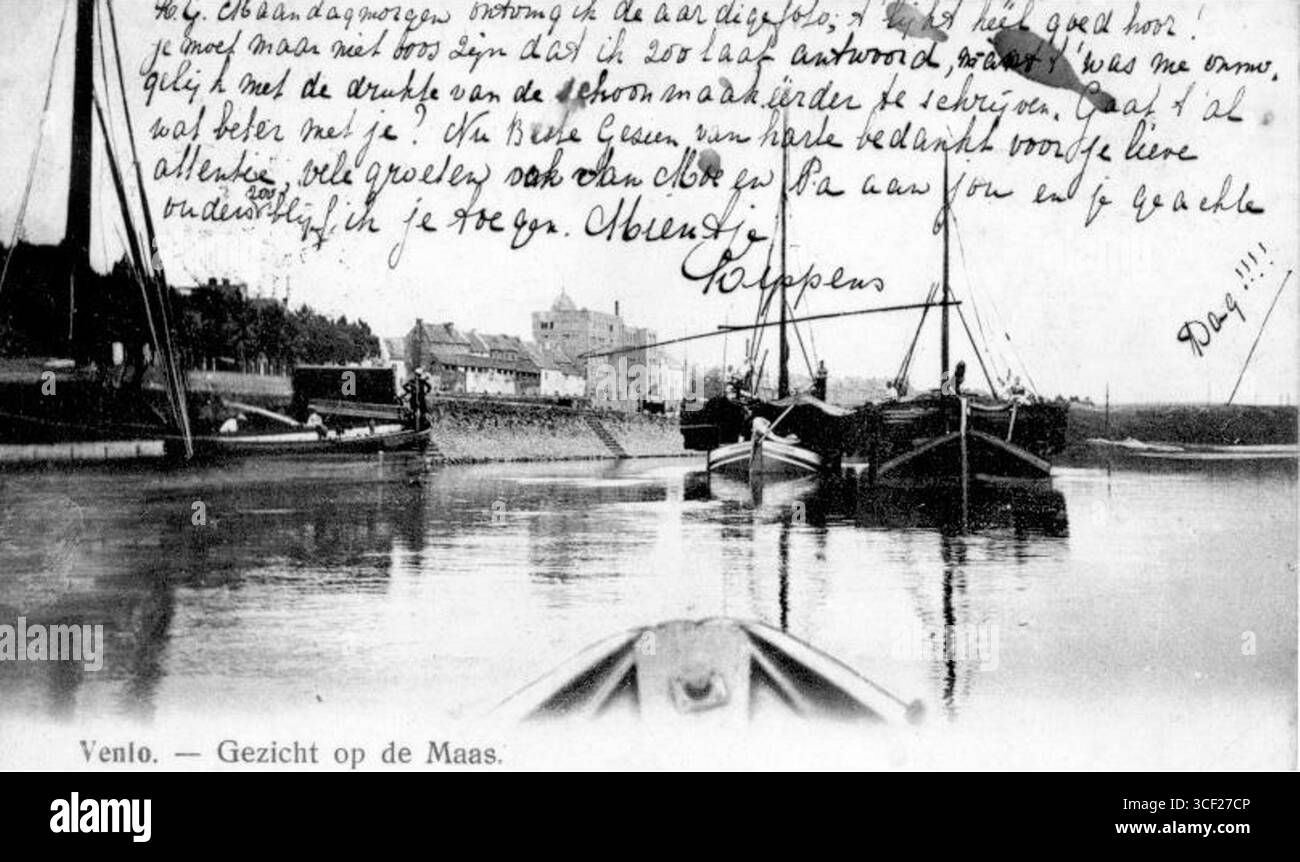 Maandagmorgen ontving ik de aardige foto; 't lijkt heel goed hoor!
je moet maar niet boos zijn dat ik zoo laat antwoord, want 't was me onmo-
gelijk met de drukte van de schoonmaak eerder te schrijven. Gaat 't al
wat beter met je? Nu Beste Gesien van harte bedankt voor je lieve
attentie, vele groeten ook van Moe en Pa aan jou en je geachte
ouders, zoo blijf ik je toegen. Mientje
Leppens
Dag!!!!
Venlo. — Gezicht op de Maas.
alamy
alamy
Image ID: 3CF27CP
www.alamy.com